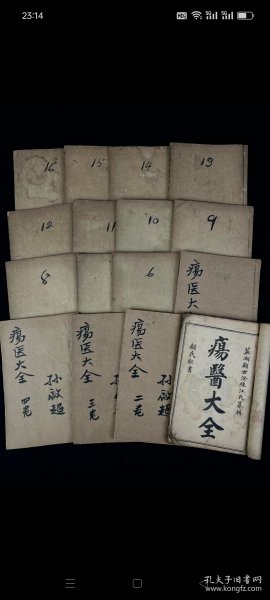 23:14
16
15
14
13
12
11
10
9
8
6
瘍医大
瘍医大全
孙啟超
四卷
瘍医大全
三卷
瘍医大全
孙啟超
二卷
瘍醫大全
顧氏秘書
孔夫子旧书网
www.kongfz.com